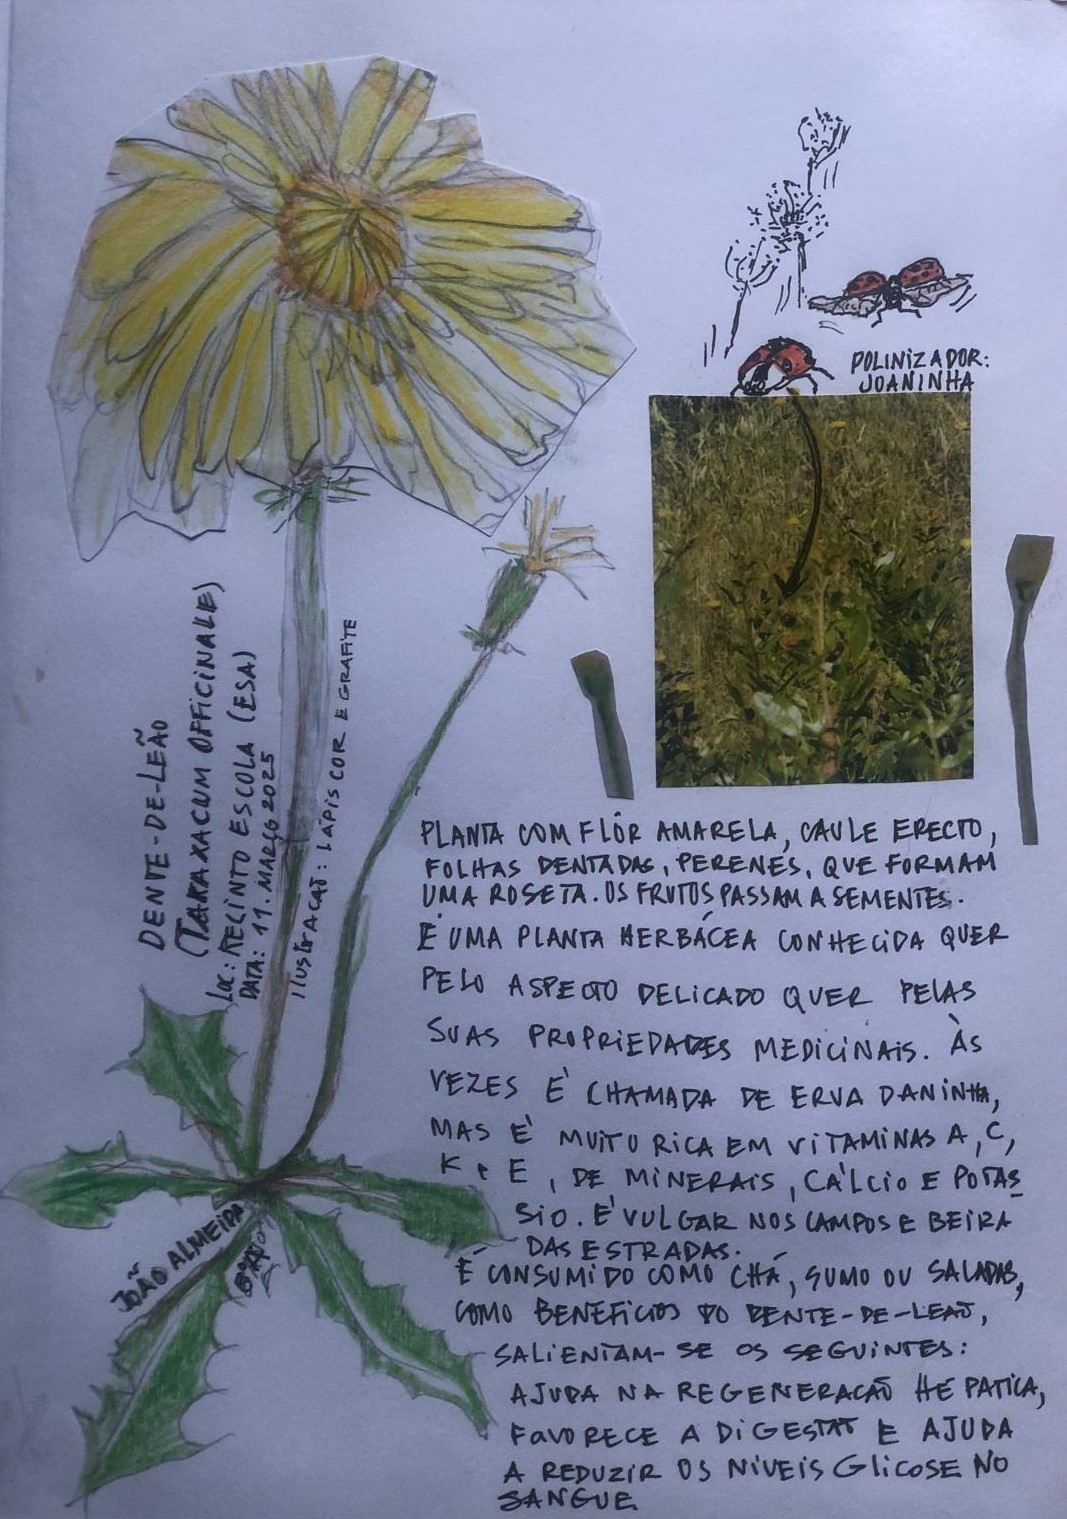 POLINIZADOR:
JOANINHA
DENTE-DE-LEÃO
(TARAXACUM OFFICINALE)
LOC: RECINTO ESCOLA (ESA)
DATA: 11. MARÇO 2025
ILUSTRAÇÃO: LÁPIS COR E GRAFITE
PLANTA COM FLÔR AMARELA, CAULE ERECTO,
FOLHAS DENTADAS, PERENES, QUE FORMAM
UMA ROSETA. OS FRUTOS PASSAM A SEMENTES.
É UMA PLANTA HERBÁCEA CONHECIDA QUER
PELO ASPECTO DELICADO QUER PELAS
SUAS PROPRIEDADES MEDICINAIS. ÀS
VEZES É CHAMADA DE ERVA DANINHA,
MAS É MUITO RICA EM VITAMINAS A, C,
K e E, DE MINERAIS, CÁLCIO E POTAS
SIO. É VULGAR NOS CAMPOS E BEIRA
DAS ESTRADAS.
É CONSUMIDO COMO CHÁ, SUMO OU SALADAS,
COMO BENEFÍCIOS DO DENTE-DE-LEÃO,
SALIENTAM-SE OS SEGUINTES:
AJUDA NA REGENERAÇÃO HEPATICA,
FAVORECE A DIGESTÃO E AJUDA
A REDUZIR OS NÍVEIS GLICOSE NO
SANGUE
JOÃO ALMEIDA